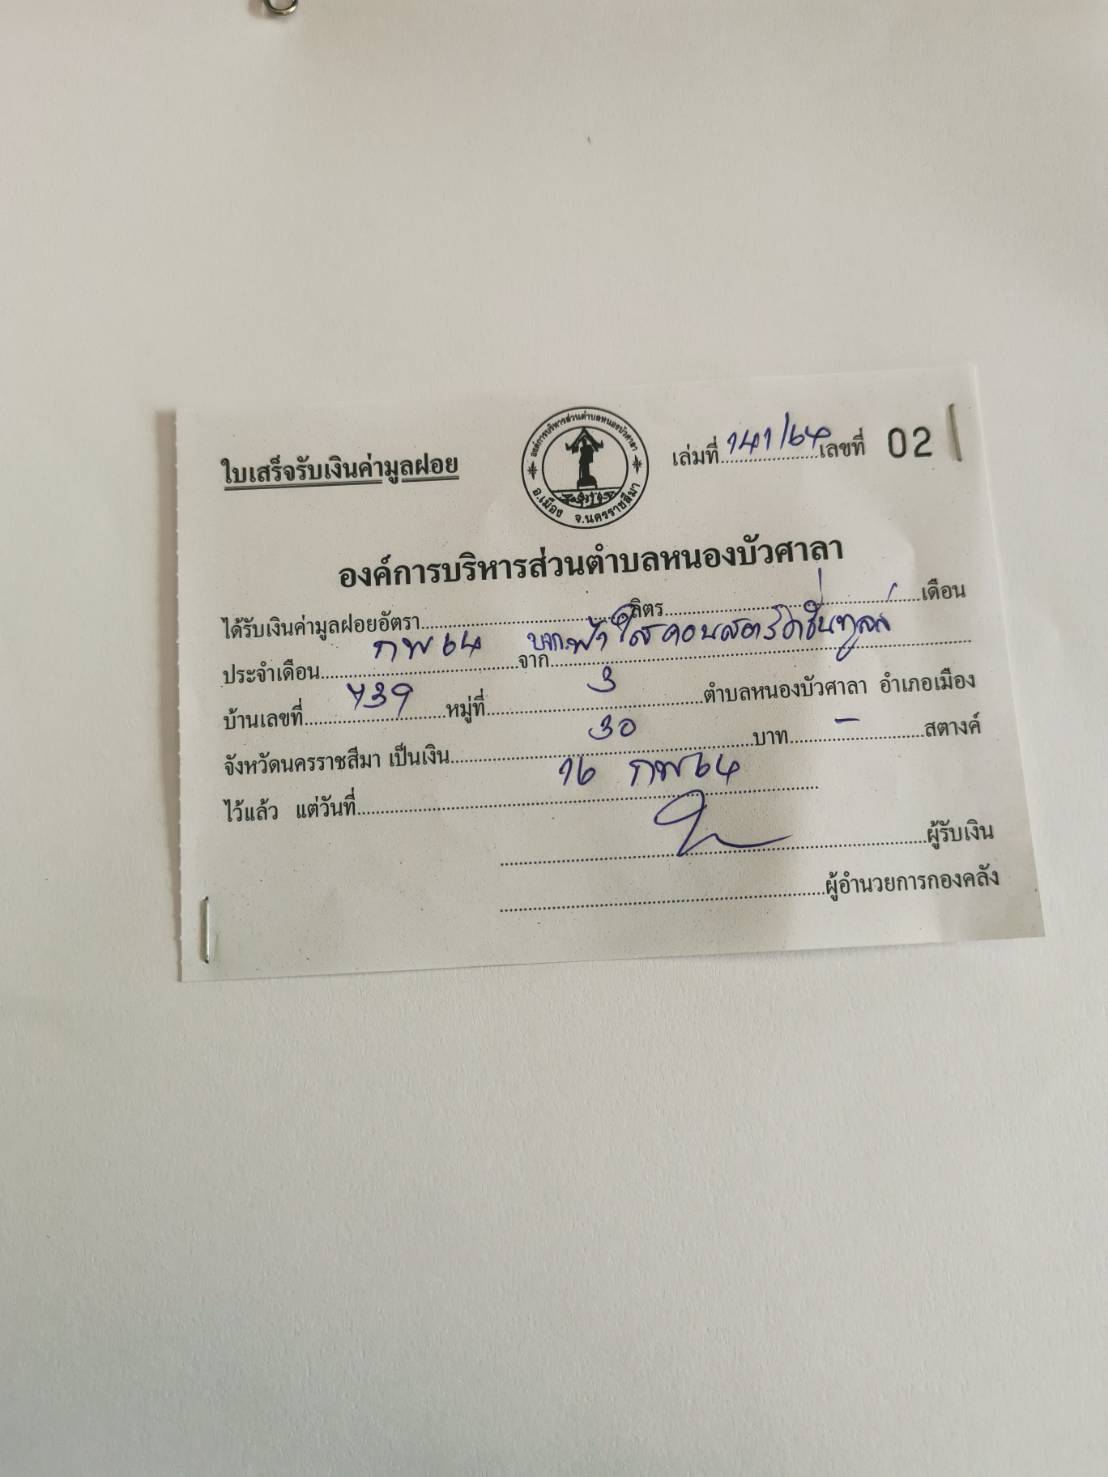 องค์การบริหารส่วนตำบลหนองบัวศาลา
อ.เมือง จ.นครราชสีมา
ใบเสร็จรับเงินค่ามูลฝอย
เล่มที่ 141/64 เลขที่ 02
องค์การบริหารส่วนตำบลหนองบัวศาลา
ได้รับเงินค่ามูลฝอยอัตรา..........ลิตร..........เดือน
ประจำเดือน กพ 64 จาก บจก.ฟ้าใสคอนสตรัคชั่นทูลส์
บ้านเลขที่ 739 หมู่ที่ 3 ตำบลหนองบัวศาลา อำเภอเมือง
จังหวัดนครราชสีมา เป็นเงิน 30 บาท - สตางค์
ไว้แล้ว แต่วันที่ 16 กพ 64
ผู้รับเงิน
ผู้อำนวยการกองคลัง